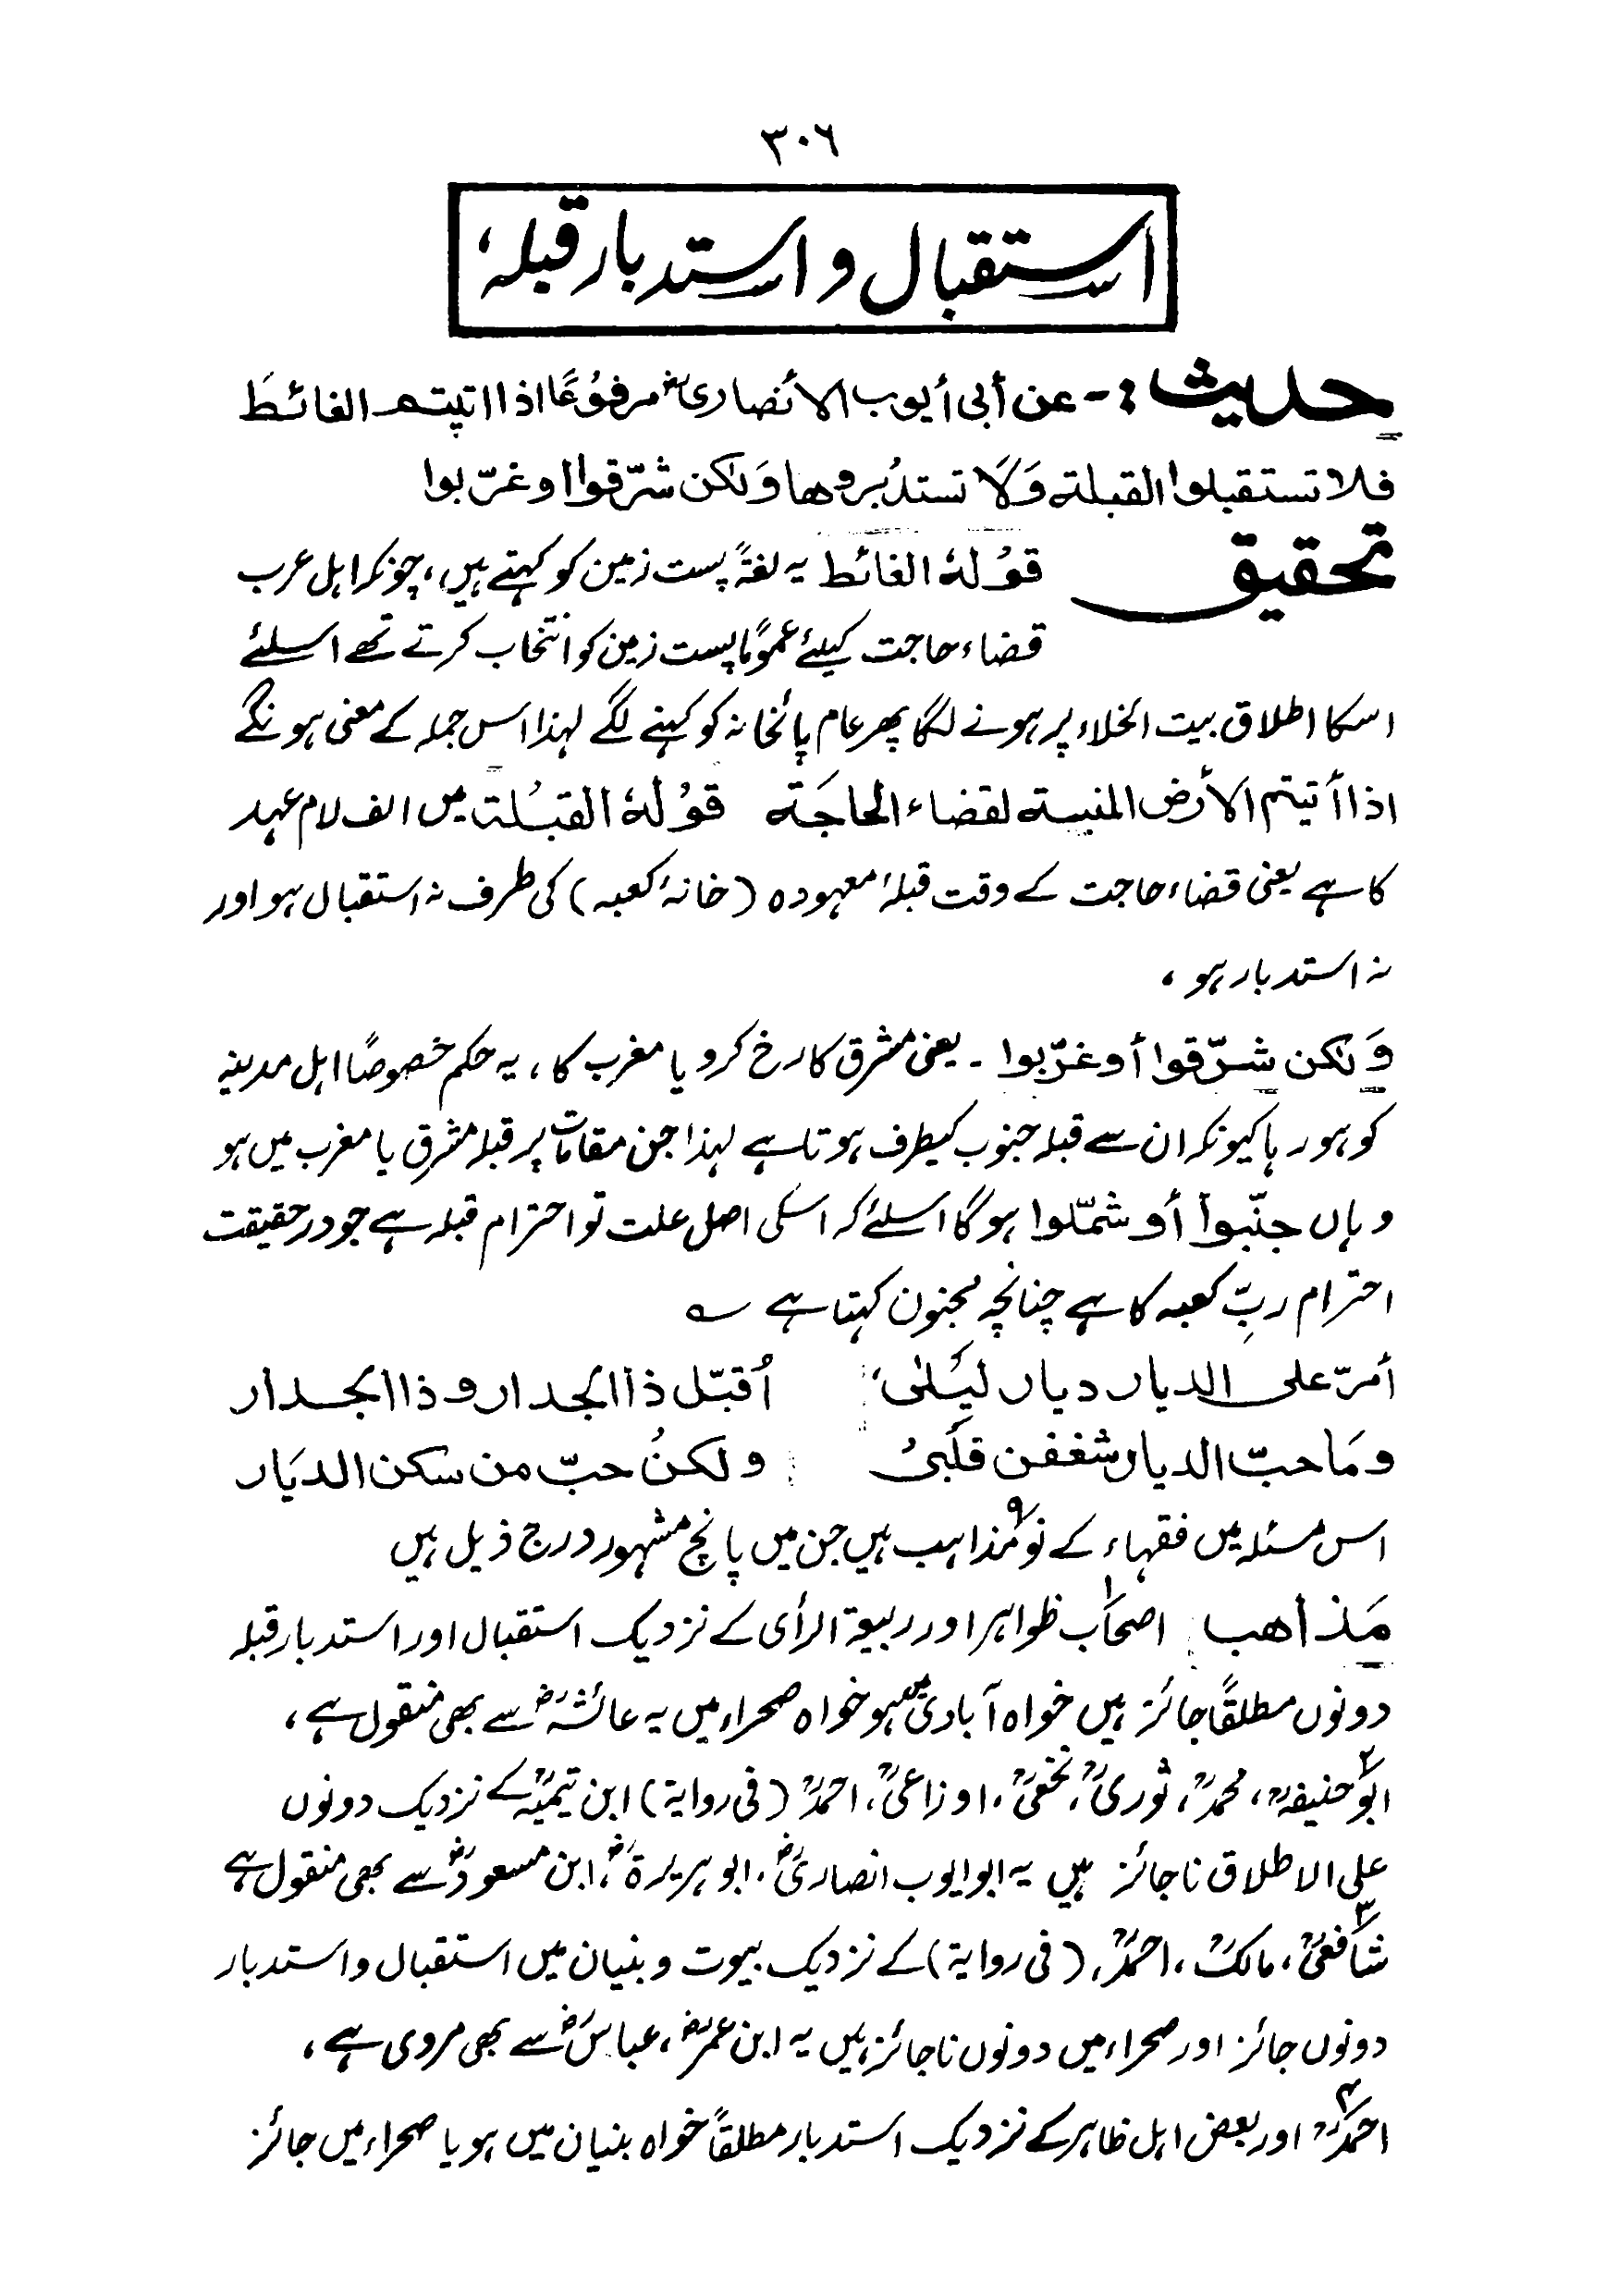 ۳۰۶
استقبال و استدبار قبلہ،
حدیث :- عن أبی أیوب الانصاریؓ مرفوعًا اذا اتیتم الغائط
فلا تستقبلوا القبلة وَلَا تستدبروها وَلٰكن شرّقوا او غرّبوا
تحقیق قولهٗ الغائط یہ لغۃً پست زمین کو کہتے ہیں، چونکہ اہل عرب
قضاء حاجت کیلئے عمومًا پست زمین کو انتخاب کرتے تھے اسلئے
اسکا اطلاق بیت الخلاء پر ہونے لگا پھر عام پائخانہ کو کہنے لگے لہذا اس جملہ کے معنی ہونگے
اذا أتیتم الأرض المنبسة لقضاء الحاجَة قولهٗ القبلة میں الف لام عہد
کا ہے یعنی قضاء حاجت کے وقت قبلۂ معہودہ (خانۂ کعبہ) کی طرف نہ استقبال ہو اور
نہ استدبار ہو،
وَلٰكن شرّقوا أو غرّبوا ۔ یعنی مشرق کا رخ کرو یا مغرب کا، یہ حکم خصوصًا اہل مدینہ
کو ہو رہا کیونکہ ان سے قبلہ جنوب کیطرف ہوتا ہے لہذا جن مقامات پر قبلہ مشرق یا مغرب میں ہو
وہاں جنّبوا أو شمّلوا ہوگا اسلئے کہ اسکی اصل علت تو احترام قبلہ ہے جو در حقیقت
احترام ربِّ کعبہ کا ہے چنانچہ مجنون کہتا ہے ؎
أمرّ علی الدیار دیار لیلیٰ، أُقبّل ذا الجدار و ذا الجدار
ومَا حبّ الدیار شغفن قلبی ولكن حبّ من سكن الدیَار
اس مسئلہ میں فقہاء کے نو۹ مذاہب ہیں جن میں پانچ مشہور درج ذیل ہیں
مَذاهب اصحاب۱ ظواہر اور ربیعۃ الرأی کے نزدیک استقبال اور استدبار قبلہ
دونوں مطلقًا جائز ہیں خواہ آبادی میں ہو خواہ صحراء میں یہ عائشہؓ سے بھی منقول ہے،
ابو۲ حنیفہؒ، محمدؒ، ثوریؒ، نخعیؒ، اوزاعیؒ، احمدؒ (فی روایة) ابن تیمیہؒ کے نزدیک دونوں
علی الاطلاق ناجائز ہیں یہ ابوایوب انصاریؓ، ابوہریرۃؓ، ابن مسعودؓ سے بھی منقول ہے
شافعیؒ۳، مالکؒ، احمدؒ، (فی روایة) کے نزدیک بیوت و بنیان میں استقبال و استدبار
دونوں جائز اور صحراء میں دونوں ناجائز ہیں یہ ابن عمرؓ، عباسؓ سے بھی مروی ہے،
احمدؒ۴ اور بعض اہل ظاہر کے نزدیک استدبار مطلقاً خواہ بنیان میں ہو یا صحراء میں جائز